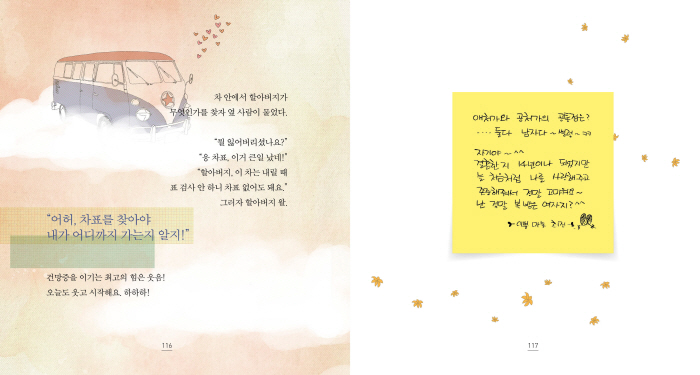 차 안에서 할아버지가
무엇인가를 찾자 옆 사람이 물었다.
“뭘 잃어버리셨나요?”
“응 차표, 이거 큰일 났네!”
“할아버지, 이 차는 내릴 때
표 검사 안 하니 차표 없어도 돼요.”
그러자 할아버지 왈,
“어허, 차표를 찾아야
내가 어디까지 가는지 알지!”
건망증을 이기는 최고의 힘은 웃음!
오늘도 웃고 시작해요, 하하하!
116
애처가와 공처가의 공통점은?
.... 둘다 남자다~ 썰렁~ ㅋㅋ
자기야~^^
결혼한지 14년이나 됐지만
늘 처음처럼 나를 사랑해주고
존중해줘서 정말 고마워요~
난 정말 복 받은 여자지?^^
117